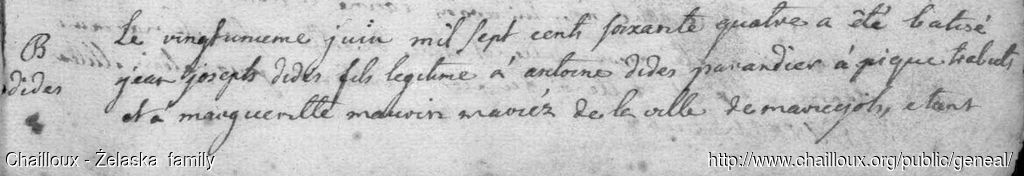 B
dides
Le vingtunieme juin mil sept cents soixante quatre a été batisé
jean joseph dides fils legitime á antoine dides parandier á pique trabuts
et a margueritte maurin mariéz de la ville de maruejols, etant
Chailloux - Żelaska family
http://www.chailloux.org/public/geneal/